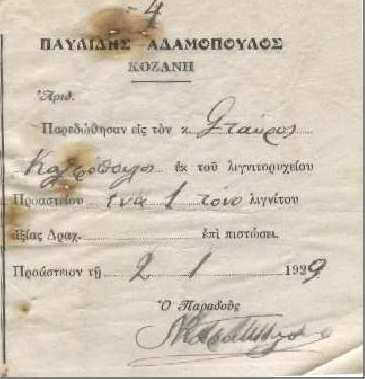 4
ΠΑΥΛΙΔΗΣ ΑΔΑΜΟΠΟΥΛΟΣ
ΚΟΖΑΝΗ
Ἀριθ.
Παρεδώθησαν εἰς τὸν κ. Σταῦρος
ἐκ τοῦ λιγνιτορυχείου
Προαστείου ἕνα 1 τόνο λιγνίτου
ἀξίας Δραχ. ἐπὶ πιστώσει.
Προάστειον τῇ 2 1 1929
Ὁ Παραδοὺς